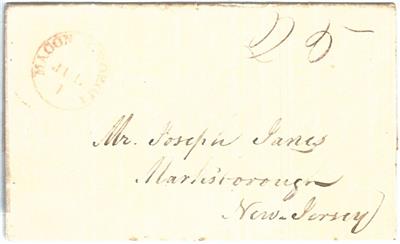 25
MACON Geo.
JUL
1
Mr. Joseph Janes
Marksborough
New-Jersey